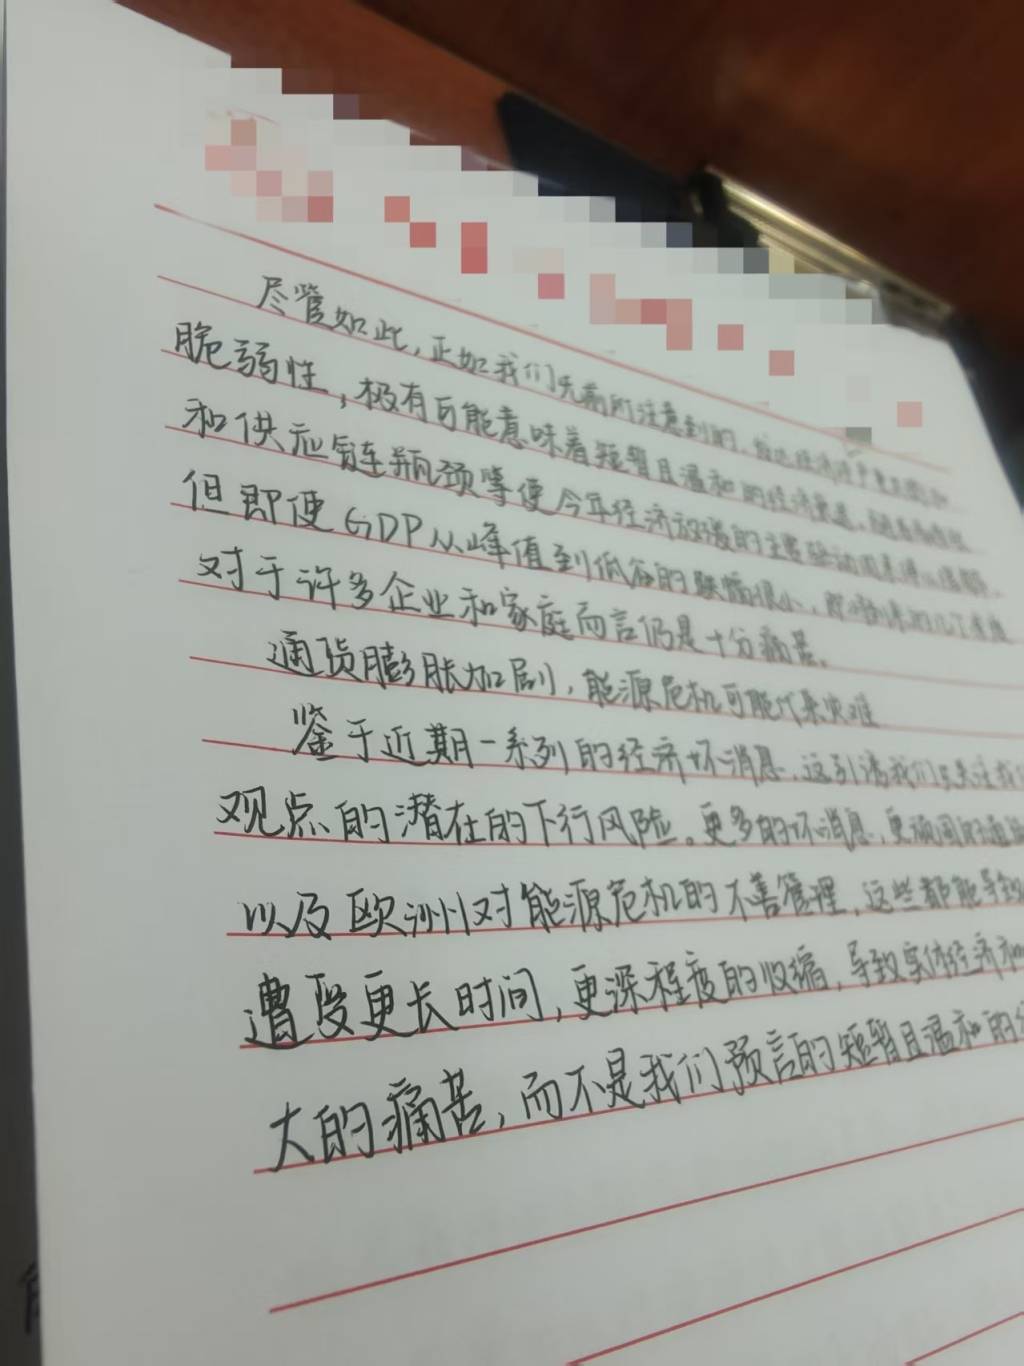 尽管如此，正如我们先前所注意到的，
脆弱性，极有可能意味着短暂且温和的经济衰退，
和供应链瓶颈等使今年经济放缓的主要驱动因素得以缓解。
但即使GDP从峰值到低谷的跌幅很小，
对于许多企业和家庭而言仍是十分痛苦。
通货膨胀加剧，能源危机可能代来灾难
鉴于近期一系列的经济坏消息，这引诱我们去关注我们
观点的潜在的下行风险。更多的坏消息，更顽固的通
以及欧洲对能源危机的不善管理，这些都能导致
遭受更长时间，更深程度的收缩，导致实体经济和
大的痛苦，而不是我们预言的短暂且温和的